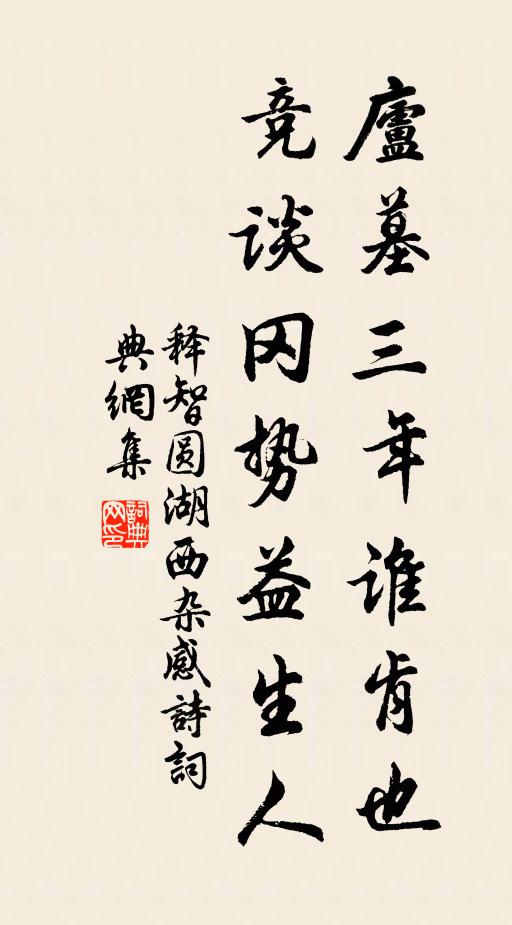 廬墓三年谁肯也
竞谈冈势益生人
释智圆湖西杂感詩詞
典網集
詞典网印